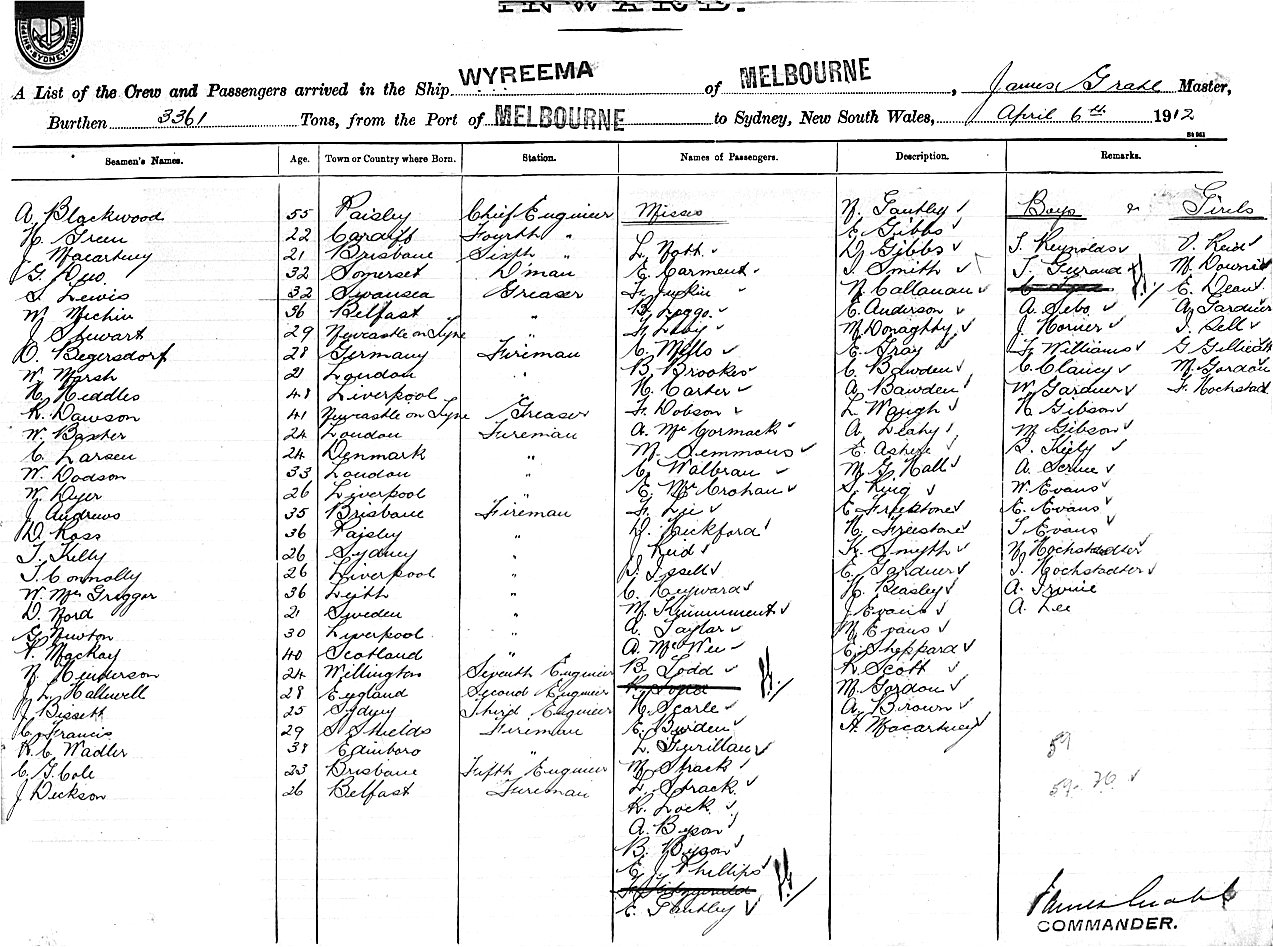 INWARD.
SYDNEY
A List of the Crew and Passengers arrived in the Ship WYREEMA of MELBOURNE, James Grahl Master,
Burthen 3361 Tons, from the Port of MELBOURNE to Sydney, New South Wales, April 6th 1912
Seamen's Names. Age. Town or Country where Born. Station. Names of Passengers. Description. Remarks.
A. Blackwood 55 Paisley Chief Engineer Misses N. Tantley Boys & Girls
H. Green 22 Cardiff Fourth " E. Gibbs
J. Macartney 21 Brisbane Sixth " L. Noth D. Gibbs T. Reynolds V. Reid
G. Duo 32 Somerset D'man E. Carment T. Smith M. Downie
S. Lewis 32 Swansea Greaser N. Callanan E. Dean
M. Michin 36 Belfast " B. Leggo E. Anderson A. Sebo A. Gardner
J. Stewart 29 Newcastle on Tyne " Levy M. Donaghty J. Horner J. Sell
O. Begersdorf 28 Germany Fireman C. Mills E. Gray Williams
W. Marsh 21 London " B. Brookes C. Bawden C. Clancy M. Gordon
H. Heddles 48 Liverpool H. Carter A. Bawden W. Gardner F. Hochstad
R. Dawson 41 Newcastle on Tyne Greaser F. Dobson L. Waugh H. Gibson
W. Baxter 24 London Fireman A. McCormack A. Leahy M. Gibson
C. Larsen 24 Denmark " M. Semmons E. Askew B. Kiely
W. Dodson 33 London " C. Walbran M. G. Hall A. Scrine
W. Dyer 26 Liverpool " E. McCrohan S. King W. Evans
J. Andrews 35 Brisbane Fireman F. Lee E. Freestone E. Evans
D. Ross 36 Paisley " D. Hickford H. Freestone S. Evans
T. Kelly 26 Sydney " J. Reid K. Smyth N. Hochstadter
T. Connolly 26 Liverpool " J. Issell E. Gardner J. Hochstadter
W. McGreggor 36 Leith " C. Heyward H. Beasley A. Irvine
D. Nord 21 Sweden " M. Krummment J. Evans A. Lee
G. Newton 30 Liverpool " C. Taylor M. Evans
Mackay 40 Scotland " A. McWee C. Sheppard
N. Henderson 24 Willington Seventh Engineer B. Todd R. Scott
J. L. Hallewell 28 England Second Engineer M. Gordon
J. Bissett 25 Sydney Third Engineer H. Searle A. Brown
C. Francis 29 S Shields Fireman E. Burden H. Macartney
R. C. Wadler 38 Edinboro " L. Gurillan 59
C. G. Cole 23 Brisbane Fifth Engineer M. Strack
J. Dickson 26 Belfast Fireman L. Strack 59-70
R. Lock
A. Byson
B. Byson
E. J. Phillips
E. Tantley
COMMANDER.